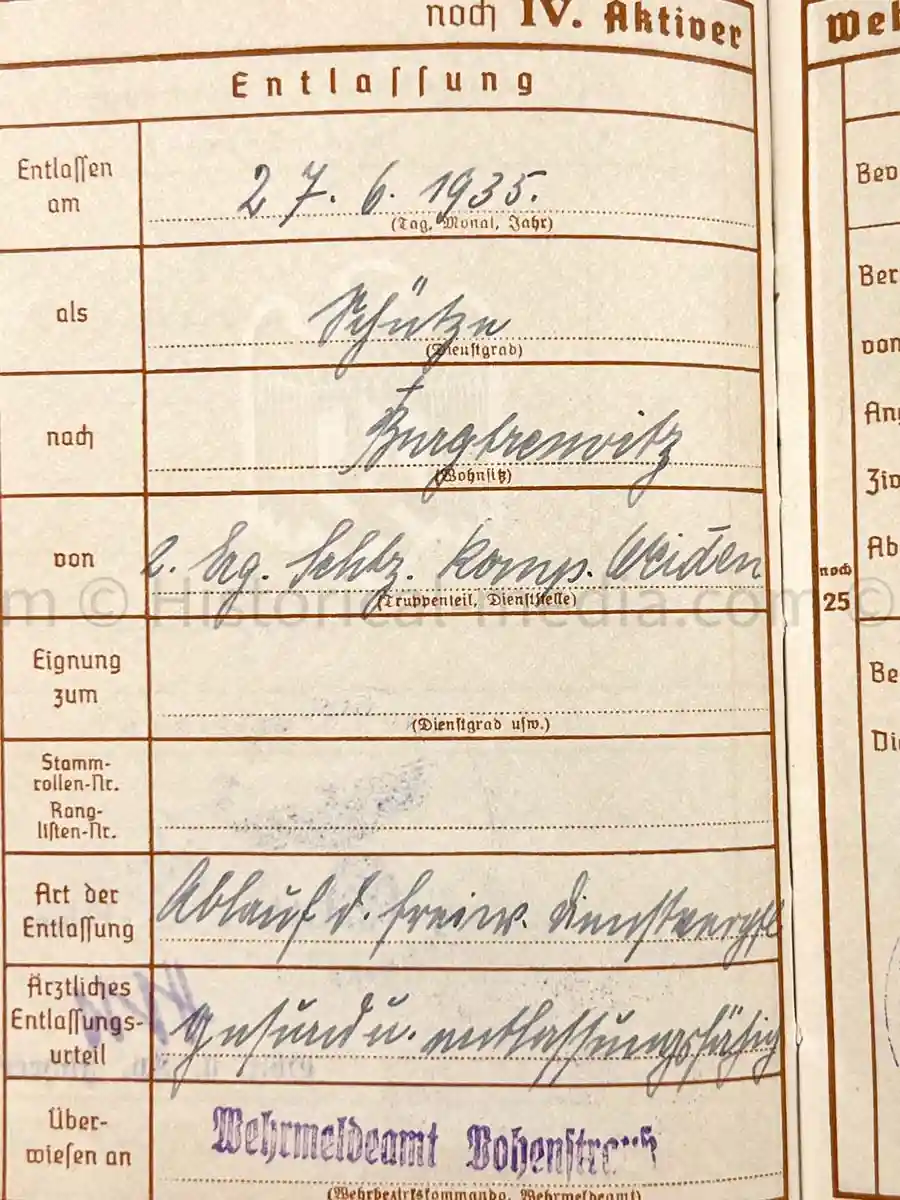 noch IV. Aktiver
Entlassung
Entlassen
am
27. 6. 1935.
(Tag, Monat, Jahr)
als
Schütze
(Dienstgrad)
nach
Burgtreswitz
(Wohnsitz)
von
2. Erg. Schtz. Komp. Weiden
(Truppenteil, Dienststelle)
m © Historical-media.com ©
Eignung
zum
(Dienstgrad usw.)
Stamm-
rollen-Nr.
Rang-
listen-Nr.
Art der
Entlassung
Ablauf d. freiw. Dienstverpfl
Ärztliches
Entlassungs-
urteil
Gesund u. entlassungsfähig
Über-
wiesen an
Wehrmeldeamt Vohenstrauß
(Wehrbezirkskommando, Wehrmeldeamt)
Weh
Bev
Ber
von
Ang
Ziv
Ab
noch
25
Be
Die